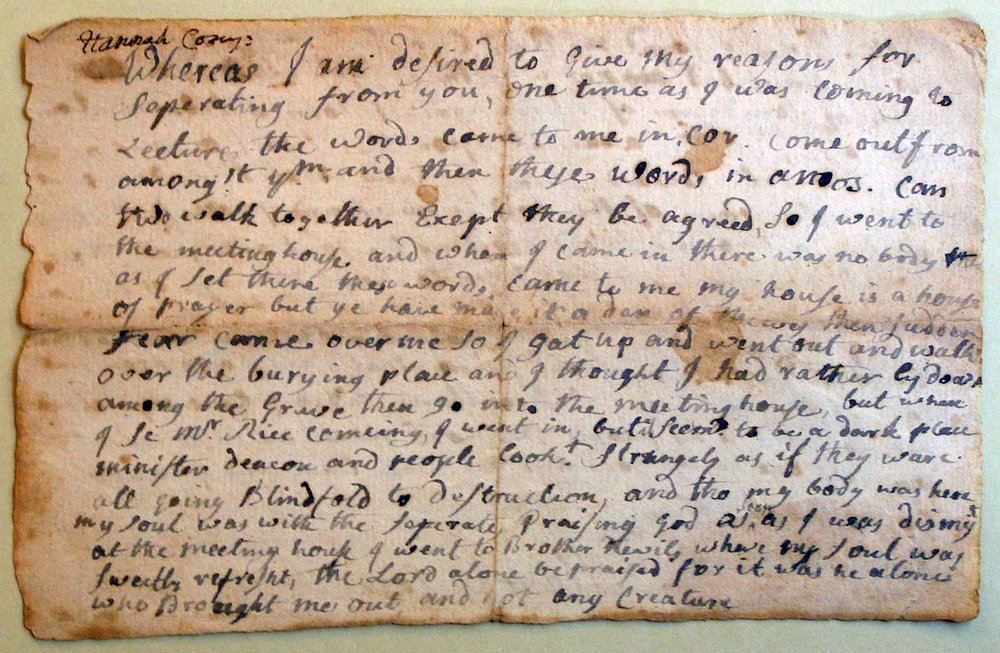 Hannah Corey:
Whereas I am desired to Give my reasons for
Seperating from you, one time as I was coming to
Lecture, the words came to me in, Cor. Come out from
among!t ym and then these words in amos. Can
two walk together Exept they be agreed, So I went to
the meeting house, and when I came in there was no body
as I set there these words, came to me my house is a house
of prayer but ye have made it a den of then Sudden
fear came over me So I gat up and went out and walk
over the burying place and I thought I had rather ly down
among the Grave then go into the meeting house, but when
I Se Mr Rice comeing, I went in, but it Seemd to be a dark place
minister deacon and people Lookt Strangely as if they ware
all going Blindfold to destruction, and tho my body was here
my Soul was with the Seperate, Praising god as soon as I was dismist
at the meeting house I went to Brother Nevils where my Soul was
Sweetly refresht, the Lord alone be praised for it was he alone
who Brought me out, and not any Creature